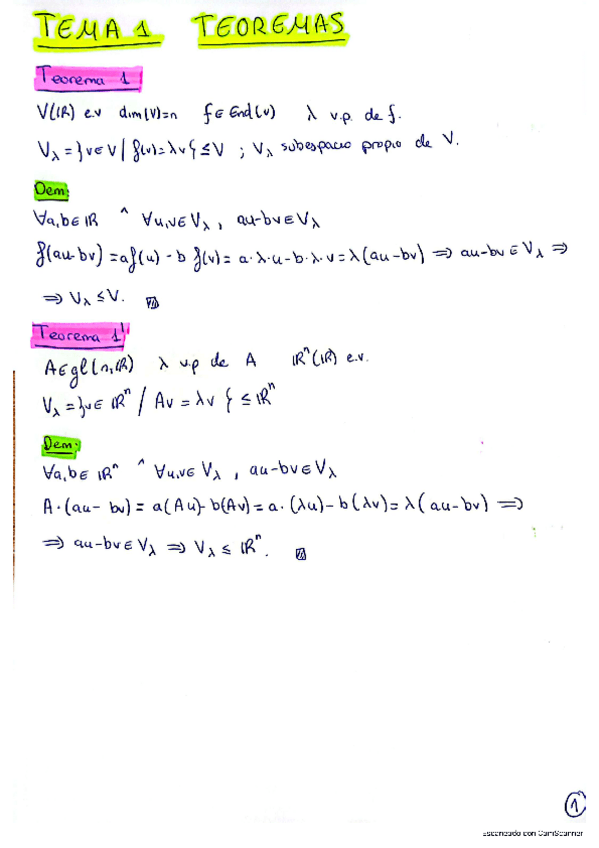 TEMA 1 TEOREMAS
Teorema 1
V(ℝ) e.v dim(V)=n f∈End(v) λ v.p. de f.
V_λ = }v∈V / f(v)=λv{ ≤ V ; V_λ subespacio propio de V.
Dem:
∀a,b∈ℝ ^ ∀u,v∈V_λ , au-bv∈V_λ
f(au-bv) = af(u) - b f(v) = a·λ·u-b·λ·v = λ(au-bv) ⇒ au-bv∈V_λ ⇒
⇒ V_λ ≤ V.
Teorema 1'
A∈gl(n,ℝ) λ v.p de A ℝⁿ(ℝ) e.v.
V_λ = }v∈ℝⁿ / Av = λv { ≤ ℝⁿ
Dem:
∀a,b∈ ℝⁿ ^ ∀u,v∈ V_λ , au-bv∈V_λ
A·(au- bv) = a(Au)-b(Av) = a·(λu)-b(λv) = λ(au-bv) ⇒
⇒ au-bv∈V_λ ⇒ V_λ ≤ ℝⁿ.
1
Escaneado con CamScanner